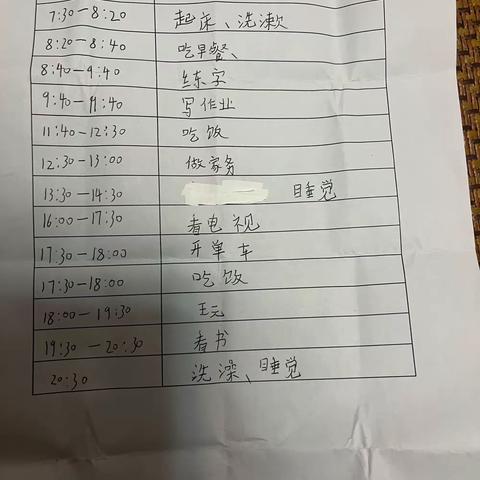 7:30-8:20 起床、洗漱
8:20-8:40 吃早餐、
8:40-9:40 练字
9:40-11:40 写作业
11:40-12:30 吃饭
12:30-13:00 做家务
13:30-14:30 睡觉
16:00-17:30 看电视
17:30-18:00 开单车
17:30-18:00 吃饭
18:00-19:30 王元
19:30-20:30 看书
20:30 洗澡、睡觉